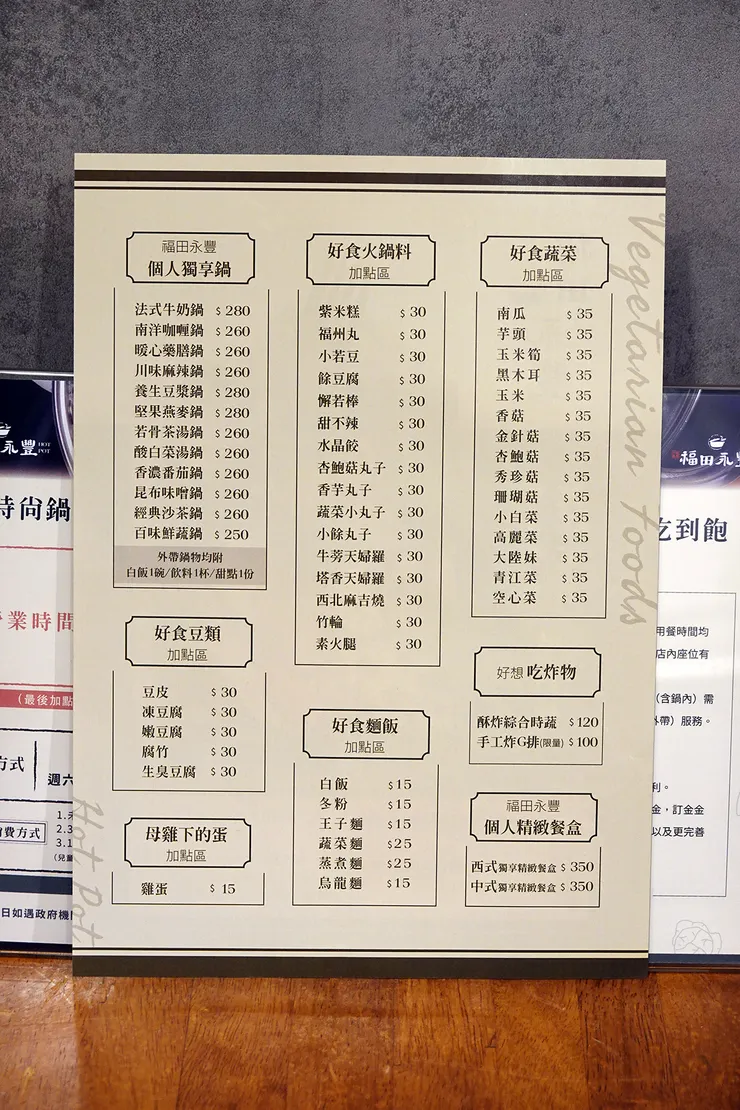 福田永豐
個人獨享鍋
法式牛奶鍋 $ 280
南洋咖喱鍋 $ 260
暖心藥膳鍋 $ 260
川味麻辣鍋 $ 260
養生豆漿鍋 $ 280
堅果燕麥鍋 $ 280
若骨茶湯鍋 $ 260
酸白菜湯鍋 $ 260
香濃番茄鍋 $ 260
昆布味噌鍋 $ 260
經典沙茶鍋 $ 260
百味鮮蔬鍋 $ 250
外帶鍋物均附
白飯1碗/飲料1杯/甜點1份
好食豆類
加點區
豆皮 $ 30
凍豆腐 $ 30
嫩豆腐 $ 30
腐竹 $ 30
生臭豆腐 $ 30
母雞下的蛋
加點區
雞蛋 $ 15
好食火鍋料
加點區
紫米糕 $ 30
福州丸 $ 30
小若豆 $ 30
餘豆腐 $ 30
懈若棒 $ 30
甜不辣 $ 30
水晶餃 $ 30
杏鮑菇丸子 $ 30
香芋丸子 $ 30
蔬菜小丸子 $ 30
小餘丸子 $ 30
牛蒡天婦羅 $ 30
塔香天婦羅 $ 30
西北麻吉燒 $ 30
竹輪 $ 30
素火腿 $ 30
好食麵飯
加點區
白飯 $15
冬粉 $15
王子麵 $15
蔬菜麵 $25
蒸煮麵 $25
烏龍麵 $15
好食蔬菜
加點區
南瓜 $ 35
芋頭 $ 35
玉米筍 $ 35
黑木耳 $ 35
玉米 $ 35
香菇 $ 35
金針菇 $ 35
杏鮑菇 $ 35
秀珍菇 $ 35
珊瑚菇 $ 35
小白菜 $ 35
高麗菜 $ 35
大陸妹 $ 35
青江菜 $ 35
空心菜 $ 35
好想 吃炸物
酥炸綜合時蔬 $120
手工炸G排(限量) $100
福田永豐
個人精緻餐盒
西式獨享精緻餐盒 $ 350
中式獨享精緻餐盒 $ 350
Vegetarian foods
Hot Pot
永豐 HOT POT
時尚鍋
業時間
(最後加點
方式
週六
費方式
日如遇政府機
福田永
吃到飽
用餐時間均
店內座位有
(含鍋內)需
外帶)服務。
利。
金,訂金金
以及更完善